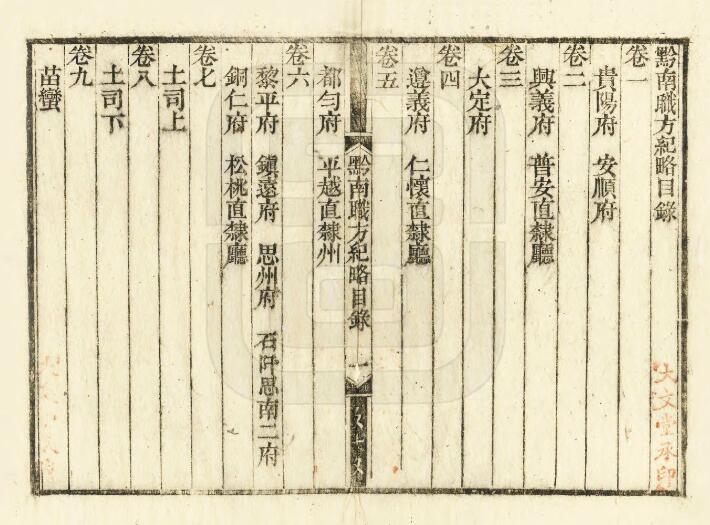 黔南職方紀略目錄
卷一
貴陽府 安順府
卷二
興義府 普安直隸廳
卷三
大定府
卷四
遵義府 仁懷直隸廳
卷五
都勻府 平越直隸州
黔南職方紀略目錄 一
卷六
黎平府 鎮遠府 思州府 石阡思南二府
銅仁府 松桃直隸廳
卷七
土司上
卷八
土司下
卷九
苗蠻
大文堂承印